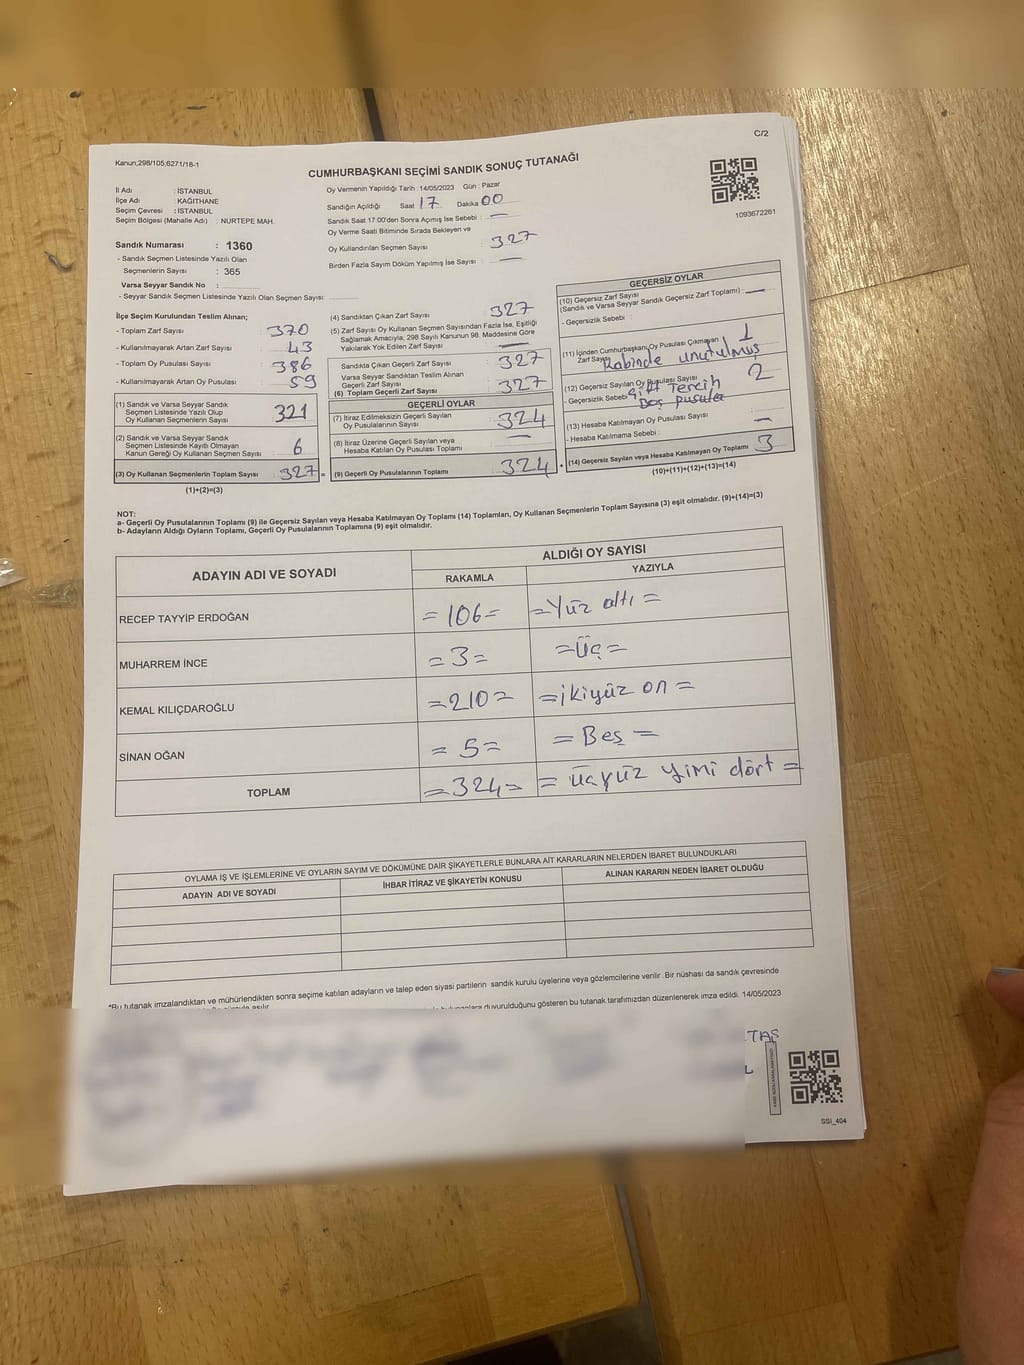 C/2
Kanun;298/105;6271/18-1
CUMHURBAŞKANI SEÇİMİ SANDIK SONUÇ TUTANAĞI
1093672261
İl Adı : İSTANBUL
İlçe Adı : KAĞITHANE
Seçim Çevresi : İSTANBUL
Seçim Bölgesi (Mahalle Adı) : NURTEPE MAH.
Sandık Numarası : 1360
- Sandık Seçmen Listesinde Yazılı Olan
Seçmenlerin Sayısı : 365
Varsa Seyyar Sandık No :
- Seyyar Sandık Seçmen Listesinde Yazılı Olan Seçmen Sayısı:
Oy Vermenin Yapıldığı Tarih : 14/05/2023 Gün : Pazar
Sandığın Açıldığı Saat 17 Dakika 00
Sandık Saat 17:00'den Sonra Açımış İse Sebebi : —
Oy Verme Saati Bitiminde Sırada Bekleyen ve
Oy Kullandırılan Seçmen Sayısı : 327
Birden Fazla Sayım Döküm Yapılmış İse Sayısı : —
İlçe Seçim Kurulundan Teslim Alınan;
- Toplam Zarf Sayısı : 370
- Kullanılmayarak Artan Zarf Sayısı : 43
- Toplam Oy Pusulası Sayısı : 386
- Kullanılmayarak Artan Oy Pusulası : 59
(1) Sandık ve Varsa Seyyar Sandık
Seçmen Listesinde Yazılı Olup
Oy Kullanan Seçmenlerin Sayısı 321
(2) Sandık ve Varsa Seyyar Sandık
Seçmen Listesinde Kayıtlı Olmayan
Kanun Gereği Oy Kullanan Seçmen Sayısı 6
(3) Oy Kullanan Seçmenlerin Toplam Sayısı 327 =
(1)+(2)=(3)
(4) Sandıktan Çıkan Zarf Sayısı 327
(5) Zarf Sayısı Oy Kullanan Seçmen Sayısından Fazla İse, Eşitliği
Sağlamak Amacıyla; 298 Sayılı Kanunun 98. Maddesine Göre
Yakılarak Yok Edilen Zarf Sayısı —
Sandıkta Çıkan Geçerli Zarf Sayısı : 327
Varsa Seyyar Sandıktan Teslim Alınan
Geçerli Zarf Sayısı :
(6) Toplam Geçerli Zarf Sayısı : 327
GEÇERLİ OYLAR
(7) İtiraz Edilmeksizin Geçerli Sayılan
Oy Pusulalarının Sayısı : 324
(8) İtiraz Üzerine Geçerli Sayılan veya
Hesaba Katılan Oy Pusulası Toplamı : —
(9) Geçerli Oy Pusulalarının Toplamı : 324 +
GEÇERSİZ OYLAR
(10) Geçersiz Zarf Sayısı
(Sandık ve Varsa Seyyar Sandık Geçersiz Zarf Toplamı) : —
- Geçersizlik Sebebi :
(11) İçinden Cumhurbaşkanı Oy Pusulası Çıkmayan
Zarf Sayısı 1
Kabinde unutulmuş
(12) Geçersiz Sayılan Oy Pusulası Sayısı 2
- Geçersizlik Sebebi Çift Tercih
Boş pusula
(13) Hesaba Katılmayan Oy Pusulası Sayısı : —
- Hesaba Katılmama Sebebi :
(14) Geçersiz Sayılan veya Hesaba Katılmayan Oy Toplamı : 3
(10)+(11)+(12)+(13)=(14)
NOT:
a- Geçerli Oy Pusulalarının Toplamı (9) ile Geçersiz Sayılan veya Hesaba Katılmayan Oy Toplamı (14) Toplamları, Oy Kullanan Seçmenlerin Toplam Sayısına (3) eşit olmalıdır. (9)+(14)=(3)
b- Adayların Aldığı Oyların Toplamı, Geçerli Oy Pusulalarının Toplamına (9) eşit olmalıdır.
ADAYIN ADI VE SOYADI
ALDIĞI OY SAYISI
RAKAMLA YAZIYLA
RECEP TAYYİP ERDOĞAN =106= =Yüz altı=
MUHARREM İNCE =3= =Üç=
KEMAL KILIÇDAROĞLU =210= =ikiyüz on=
SİNAN OĞAN =5= =Beş=
TOPLAM =324= =üçyüz yimi dört=
OYLAMA İŞ VE İŞLEMLERİNE VE OYLARIN SAYIM VE DÖKÜMÜNE DAİR ŞİKAYETLERLE BUNLARA AİT KARARLARIN NELERDEN İBARET BULUNDUKLARI
ADAYIN ADI VE SOYADI İHBAR İTİRAZ VE ŞİKAYETİN KONUSU ALINAN KARARIN NEDEN İBARET OLDUĞU
*Bu tutanak imzalandıktan ve mühürlendikten sonra seçime katılan adayların ve talep eden siyasi partilerin sandık kurulu üyelerine veya gözlemcilerine verilir. Bir nüshası da sandık çevresinde
duyurulduğunu gösteren bu tutanak tarafımızdan düzenlenerek imza edildi. 14/05/2023
TAŞ
SSI_404